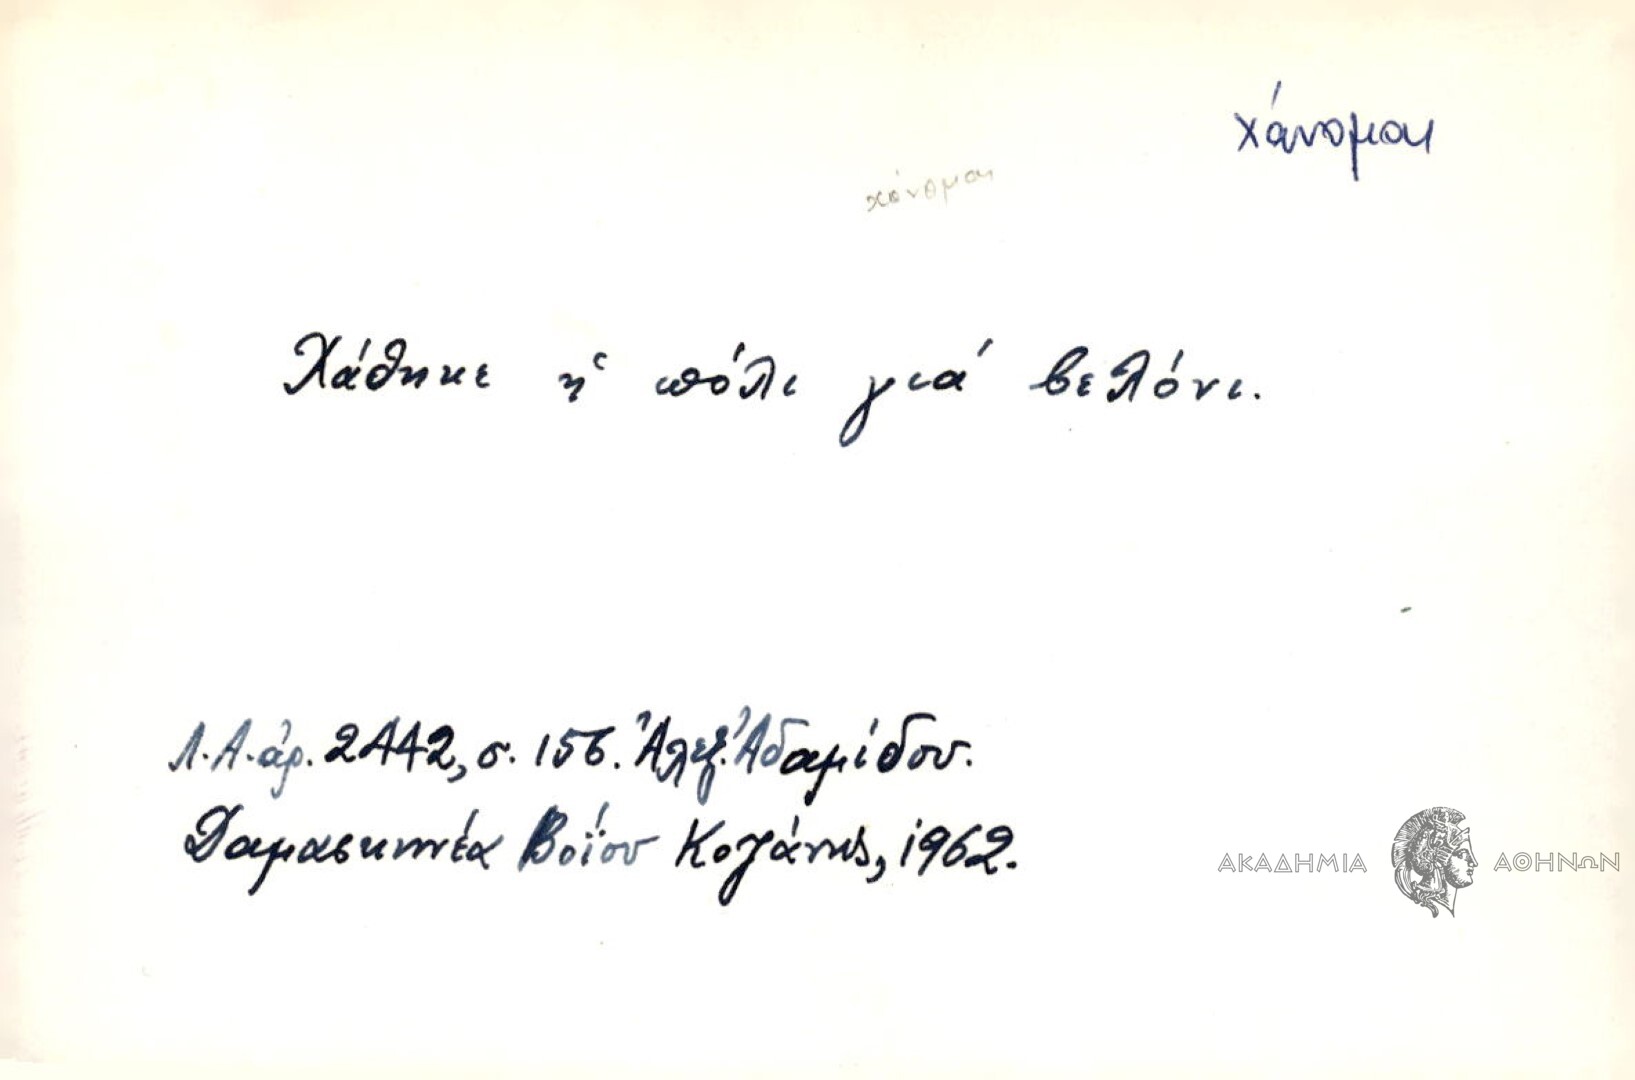 χάνομαι
χάνομαι
Χάθηκε ἡ πόλι γιά βελόνι.
Λ.Α. ἀρ. 2442, σ. 156. Ἀλεξ. Ἀδαμίδου.
Δαμασκηνέα Βοΐου Κοζάνης, 1962.
ΑΚΑΔΗΜΙΑ ΑΘΗΝΩΝ